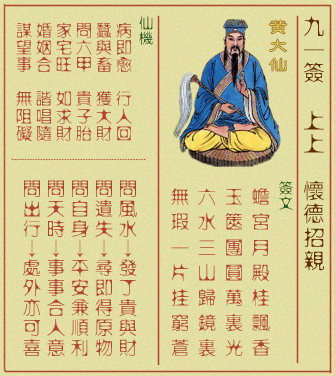 九一簽 上上 懷德招親
黃大仙
簽文
蟾宮月殿桂飄香
玉篋團圓萬裏光
六水三山歸鏡裏
無瑕一片挂窮蒼
仙機
病即愈 行人回
蠶與畜 獲大財
問六甲 貴子胎
家宅旺 如求財
婚姻合 諧唱隨
謀望事 無阻礙
問風水→發丁貴與財
問遺失→尋即得原物
問自身→平安兼順利
問天時→事事合人意
問出行→處外亦可喜